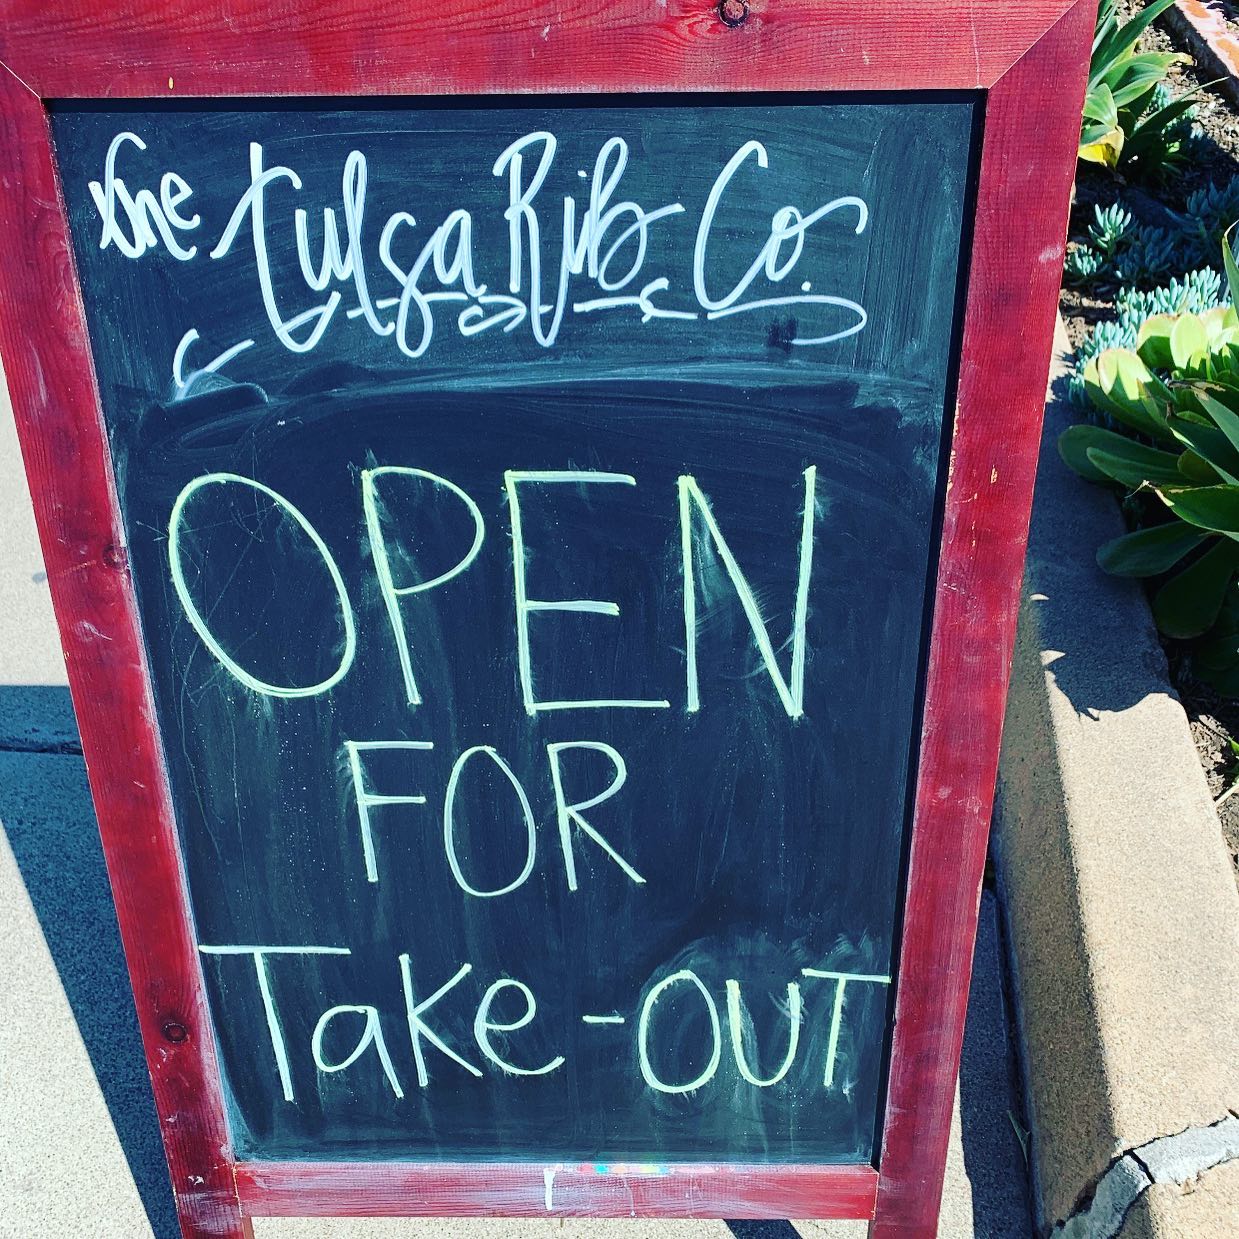 the Tulsa Rib Co.
OPEN
FOR
Take-OUT